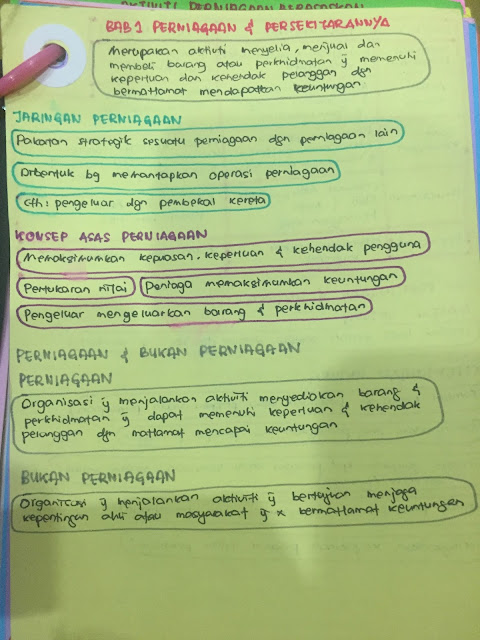 AKTIVITI PERNIAGAAN BERDASARKAN
BAB 1 PERNIAGAAN & PERSEKITARANNYA
Merupakan aktiviti menyelia, menjual dan
membeli barang atau perkhidmatan yg memenuhi
keperluan dan kehendak pelanggan dgn
bermatlamat mendapatkan keuntungan.
JARINGAN PERNIAGAAN
Pakatan strategik sesuatu perniagaan dgn perniagaan lain
Dibentuk bg memantapkan operasi perniagaan
Cth: pengeluar dgn pembekal kereta
KONSEP ASAS PERNIAGAAN
Memaksimumkan kepuasan, keperluan & kehendak pengguna
Pertukaran nilai
Peniaga memaksimumkan keuntungan
Pengeluar mengeluarkan barang & perkhidmatan
PERNIAGAAN & BUKAN PERNIAGAAN
PERNIAGAAN
Organisasi yg menjalankan aktiviti menyediakan barang &
perkhidmatan yg dapat memenuhi keperluan & kehendak
pelanggan dgn matlamat mencapai keuntungan
BUKAN PERNIAGAAN
Organisasi yg menjalankan aktiviti yg bertujuan menjaga
kepentingan ahli atau masyarakat yg x bermatlamat keuntungan